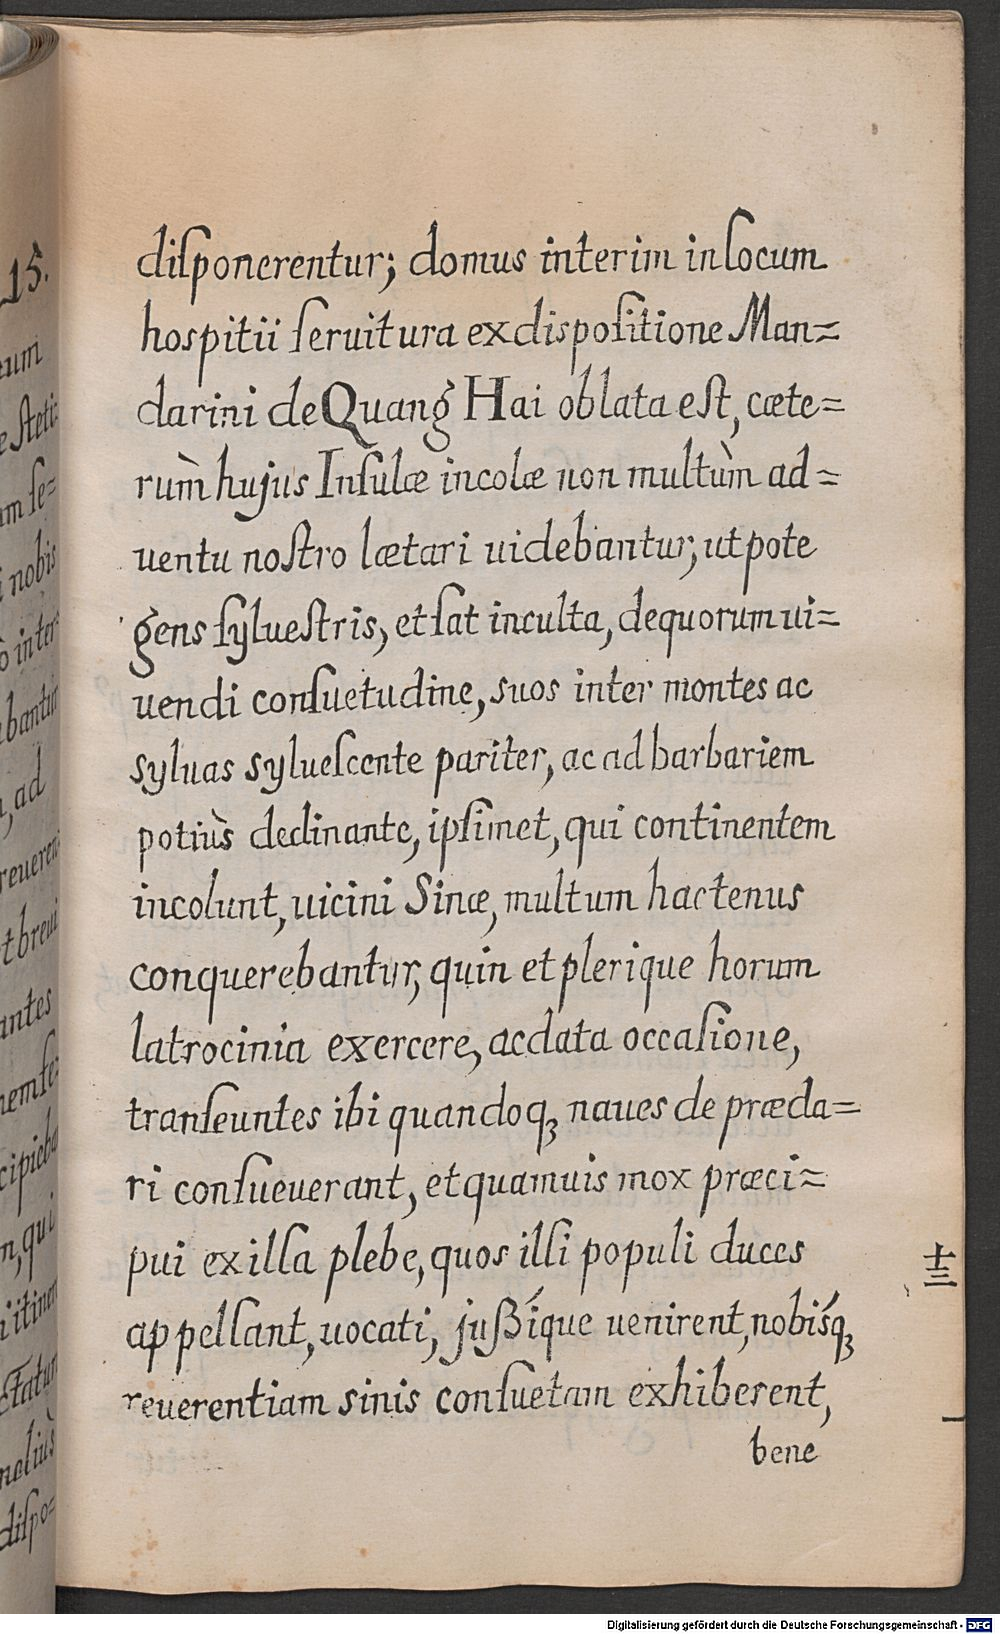 diſponerentur; domus interim in locum
hospitii ſeruitura ex dispoſitione Man=
darini de Quang Hai oblata eſt, cæte=
rùm hujus Inſulæ incolæ non multùm ad=
uentu noſtro lætari uidebantur, utpote
gens ſylueſtris, et ſat inculta, de quorum ui=
uendi conſuetudine, suos inter montes ac
syluas sylueſcente pariter, ac ad barbariem
potiùs declinante, ipſimet, qui continentem
incolunt, uicini Sinæ, multum hactenus
conquerebantur, quin et plerique horum
latrocinia exercere, ac data occaſione,
tranſeuntes ibi quandoqꝫ naues de præda=
ri conſueuerant, et quamuis mox præci=
pui ex illa plebe, quos illi populi duces
appellant, uocati, jußíque uenirent, nobiśqꝫ
reuerentiam sinis conſuetam exhiberent,
bene
十三
15.
eum
nobis
ad
antes
diſpo=
Digitalisierung gefördert durch die Deutsche Forschungsgemeinschaft - DFG